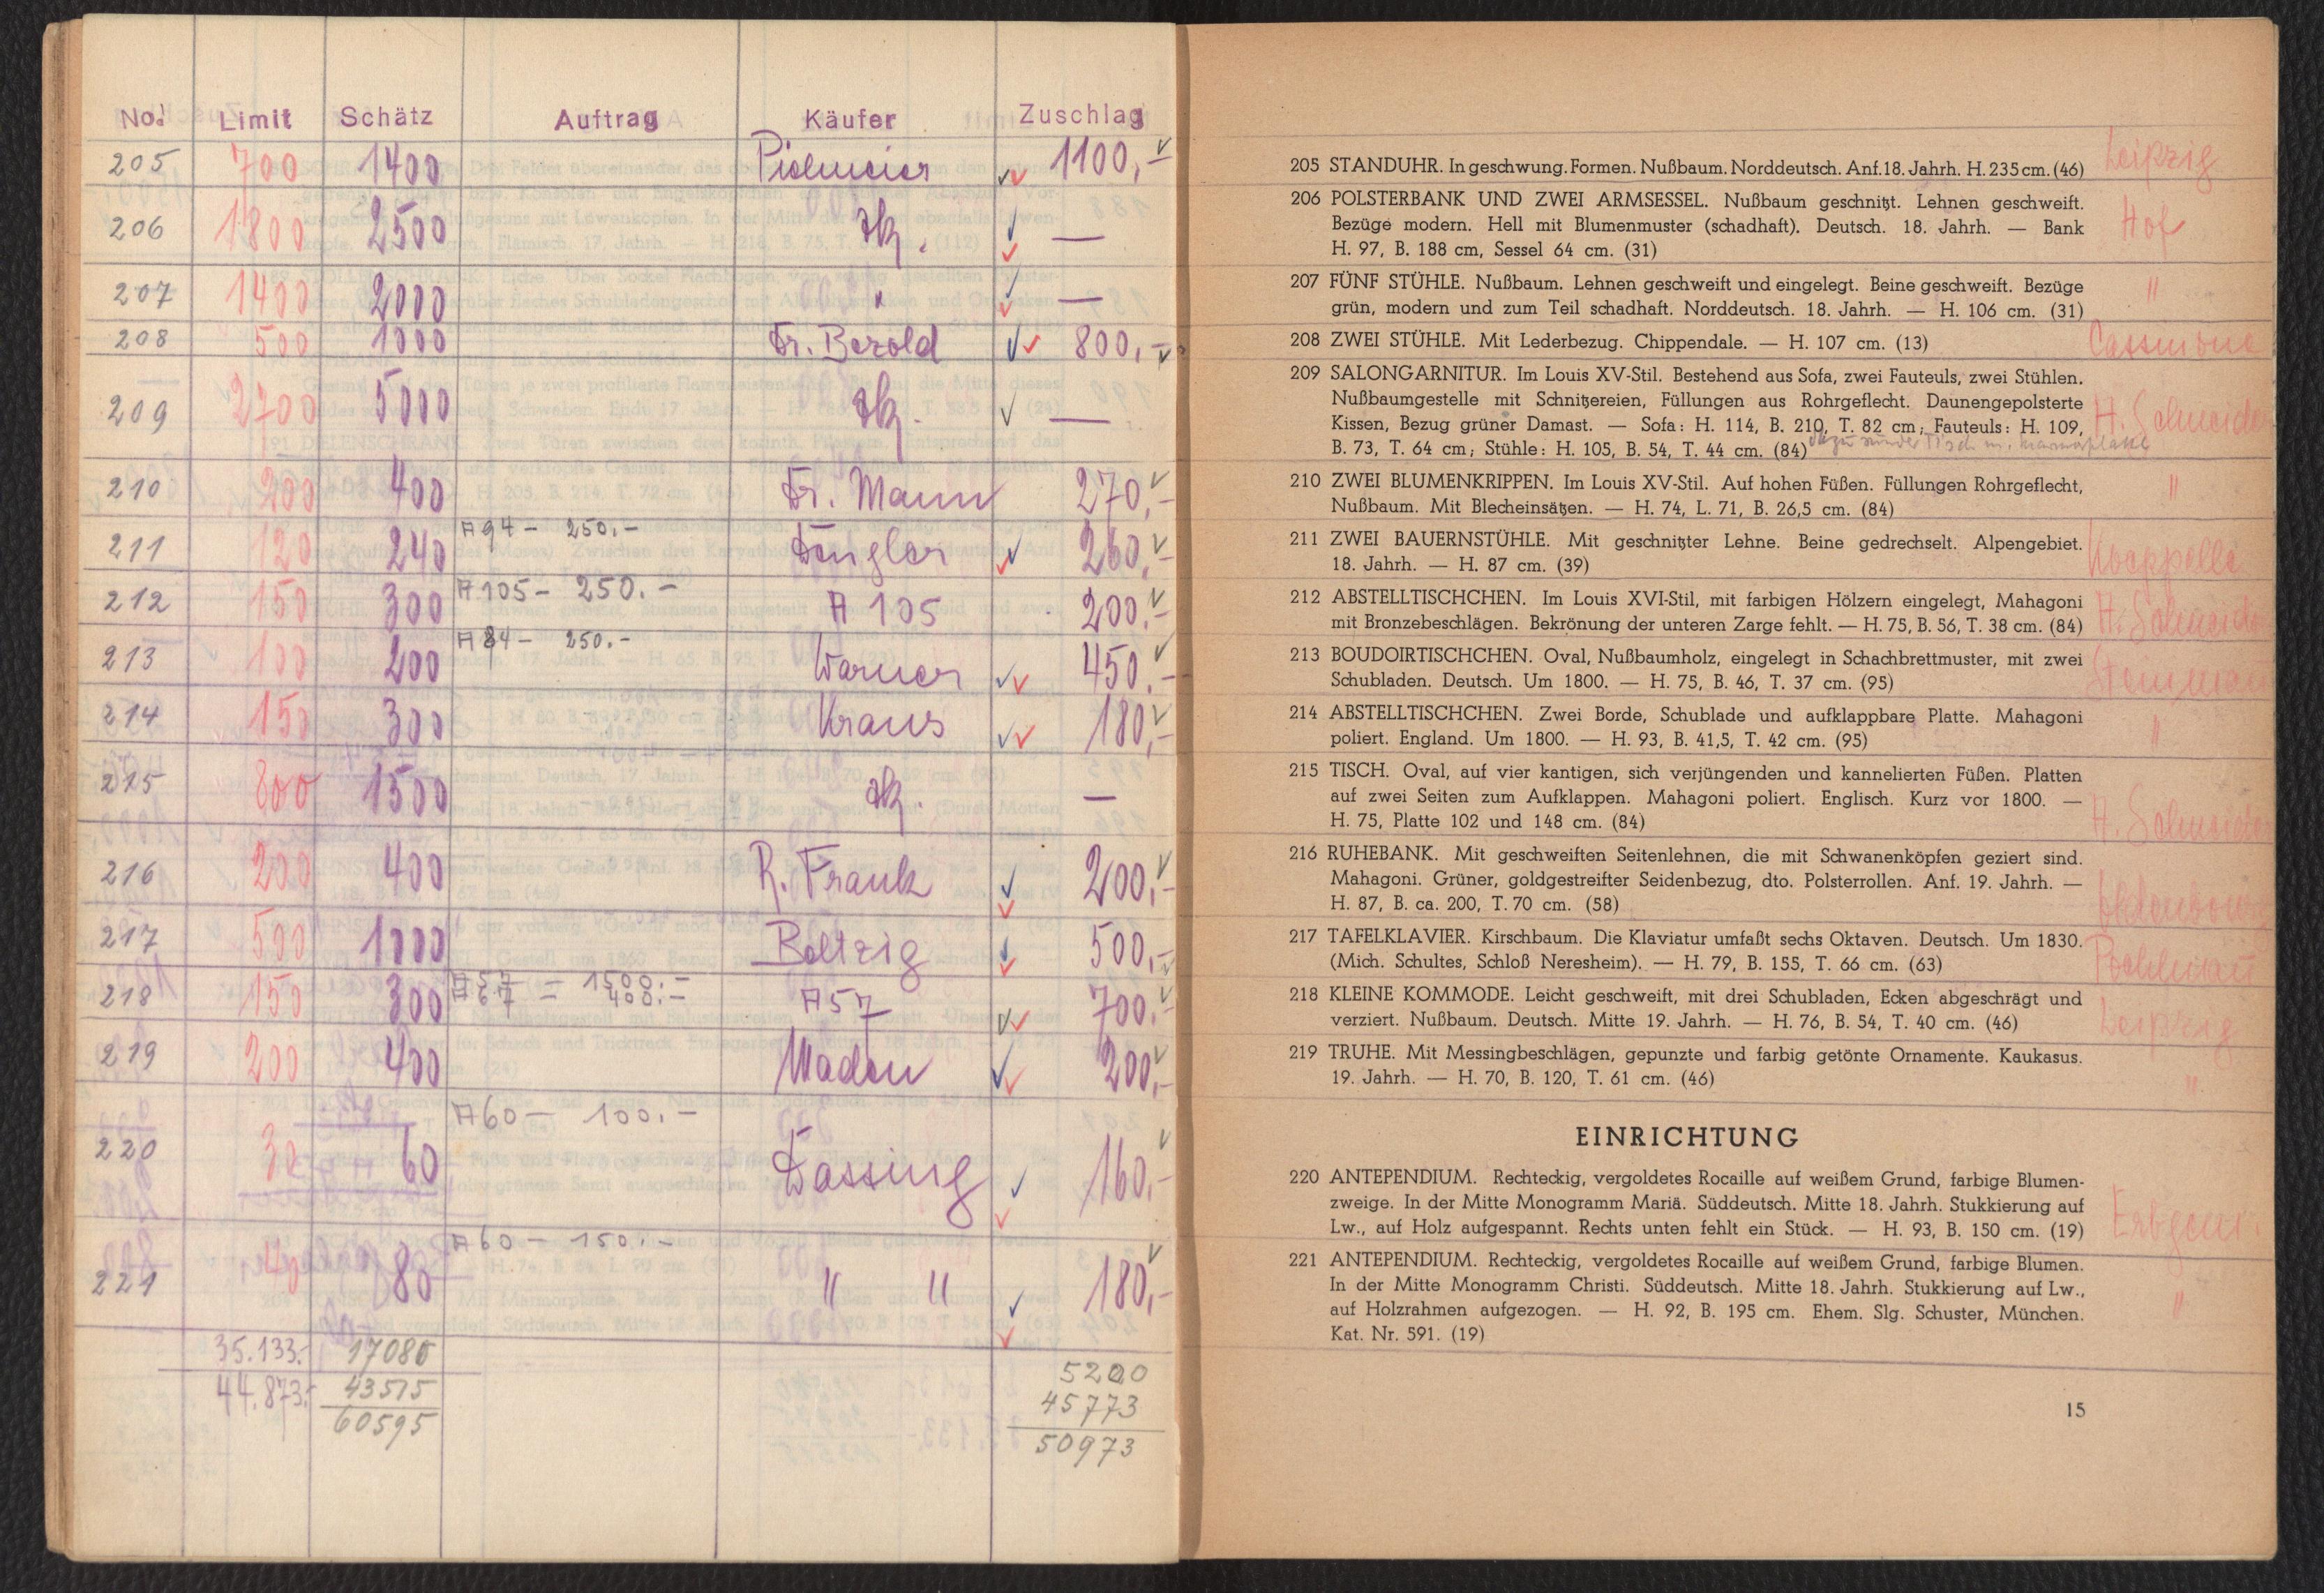 No. Limit Schätz Auftrag Käufer Zuschlag
205 700 1400 1100,-
206 1800 2500 —
207 1400 2000 " —
208 500 1000 Fr. Berold 800,-
209 2700 5000 —
210 200 400 Fr. Mann 270,-
A94 - 250.-
211 120 240 260,-
A105 - 250.-
212 150 300 A 105 200.-
A84 - 250.-
213 100 200 Warner 450.-
214 150 300 Kraus 180,-
215 800 1500 —
216 200 400 R. Frank 200,-
217 500 1000 Boltzig 500,-
A57 - 1500.-
A67 - 400.-
218 150 300 A57 700.-
219 200 400 Maden 200,-
A60 - 100.-
220 30 60 Dassing 160,-
A60 - 150.-
221 40 80 " " 180,-
35.133.- 17080 5200
44.873.- 43515 45773
60595 50973
205 STANDUHR. In geschwung. Formen. Nußbaum. Norddeutsch. Anf. 18. Jahrh. H. 235 cm. (46) Leipzig
206 POLSTERBANK UND ZWEI ARMSESSEL. Nußbaum geschnitzt. Lehnen geschweift.
Bezüge modern. Hell mit Blumenmuster (schadhaft). Deutsch. 18. Jahrh. — Bank Hof
H. 97, B. 188 cm, Sessel 64 cm. (31)
207 FÜNF STÜHLE. Nußbaum. Lehnen geschweift und eingelegt. Beine geschweift. Bezüge "
grün, modern und zum Teil schadhaft. Norddeutsch. 18. Jahrh. — H. 106 cm. (31)
208 ZWEI STÜHLE. Mit Lederbezug. Chippendale. — H. 107 cm. (13)
209 SALONGARNITUR. Im Louis XV-Stil. Bestehend aus Sofa, zwei Fauteuls, zwei Stühlen.
Nußbaumgestelle mit Schnitzereien, Füllungen aus Rohrgeflecht. Daunengepolsterte
Kissen, Bezug grüner Damast. — Sofa: H. 114, B. 210, T. 82 cm; Fauteuls: H. 109, H. Schneider
B. 73, T. 64 cm; Stühle: H. 105, B. 54, T. 44 cm. (84) dazu runder Tisch m. Marmorplatte
210 ZWEI BLUMENKRIPPEN. Im Louis XV-Stil. Auf hohen Füßen. Füllungen Rohrgeflecht, "
Nußbaum. Mit Blecheinsätzen. — H. 74, L. 71, B. 26,5 cm. (84)
211 ZWEI BAUERNSTÜHLE. Mit geschnitzter Lehne. Beine gedrechselt. Alpengebiet.
18. Jahrh. — H. 87 cm. (39)
212 ABSTELLTISCHCHEN. Im Louis XVI-Stil, mit farbigen Hölzern eingelegt, Mahagoni
mit Bronzebeschlägen. Bekrönung der unteren Zarge fehlt. — H. 75, B. 56, T. 38 cm. (84) H. Schneider
213 BOUDOIRTISCHCHEN. Oval, Nußbaumholz, eingelegt in Schachbrettmuster, mit zwei
Schubladen. Deutsch. Um 1800. — H. 75, B. 46, T. 37 cm. (95)
214 ABSTELLTISCHCHEN. Zwei Borde, Schublade und aufklappbare Platte. Mahagoni
poliert. England. Um 1800. — H. 93, B. 41,5, T. 42 cm. (95) "
215 TISCH. Oval, auf vier kantigen, sich verjüngenden und kannelierten Füßen. Platten
auf zwei Seiten zum Aufklappen. Mahagoni poliert. Englisch. Kurz vor 1800. —
H. 75, Platte 102 und 148 cm. (84) H. Schneider
216 RUHEBANK. Mit geschweiften Seitenlehnen, die mit Schwanenköpfen geziert sind.
Mahagoni. Grüner, goldgestreifter Seidenbezug, dto. Polsterrollen. Anf. 19. Jahrh. —
H. 87, B. ca. 200, T. 70 cm. (58)
217 TAFELKLAVIER. Kirschbaum. Die Klaviatur umfaßt sechs Oktaven. Deutsch. Um 1830.
(Mich. Schultes, Schloß Neresheim). — H. 79, B. 155, T. 66 cm. (63)
218 KLEINE KOMMODE. Leicht geschweift, mit drei Schubladen, Ecken abgeschrägt und
verziert. Nußbaum. Deutsch. Mitte 19. Jahrh. — H. 76, B. 54, T. 40 cm. (46) Leipzig
219 TRUHE. Mit Messingbeschlägen, gepunzte und farbig getönte Ornamente. Kaukasus.
19. Jahrh. — H. 70, B. 120, T. 61 cm. (46) "
EINRICHTUNG
220 ANTEPENDIUM. Rechteckig, vergoldetes Rocaille auf weißem Grund, farbige Blumen-
zweige. In der Mitte Monogramm Mariä. Süddeutsch. Mitte 18. Jahrh. Stukkierung auf
Lw., auf Holz aufgespannt. Rechts unten fehlt ein Stück. — H. 93, B. 150 cm. (19)
221 ANTEPENDIUM. Rechteckig, vergoldetes Rocaille auf weißem Grund, farbige Blumen.
In der Mitte Monogramm Christi. Süddeutsch. Mitte 18. Jahrh. Stukkierung auf Lw.,
auf Holzrahmen aufgezogen. — H. 92, B. 195 cm. Ehem. Slg. Schuster, München. "
Kat. Nr. 591. (19)
15